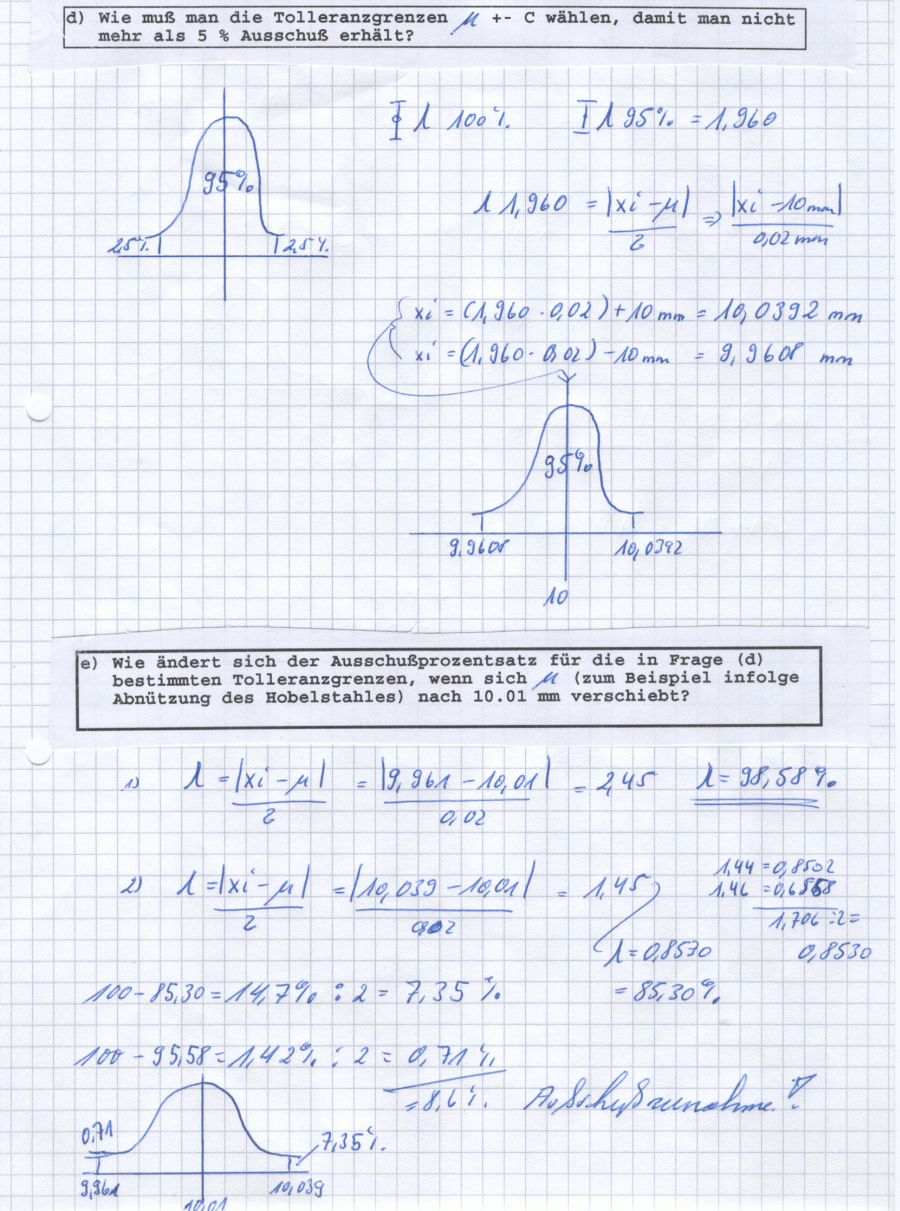 d) Wie muß man die Tolleranzgrenzen μ +- C wählen, damit man nicht
mehr als 5 % Ausschuß erhält?
λ 100%. λ 95% = 1,960
95%
2,5%. 2,5%.
λ 1,960 = |xi - μ| / 2 ⇒ |xi - 10mm| / 0,02 mm
xi = (1,960 · 0,02) + 10 mm = 10,0392 mm
xi = (1,960 · 0,02) - 10 mm = 9,9608 mm
95%
9,9608 10,0392
10
e) Wie ändert sich der Ausschußprozentsatz für die in Frage (d)
bestimmten Tolleranzgrenzen, wenn sich μ (zum Beispiel infolge
Abnützung des Hobelstahles) nach 10.01 mm verschiebt?
1) λ = |xi - μ| / 2 = |9,961 - 10,01| / 0,02 = 2,45 λ = 98,58%
2) λ = |xi - μ| / 2 = |10,039 - 10,01| / 0,02 = 1,45
1,44 = 0,8502
1,46 =
1,706 :2=
λ = 0,8530 0,8530
100 - 85,30 = 14,7% : 2 = 7,35 % = 85,30%
100 - 95,58 = 1,42% : 2 = 0,71%
= 8,6%. Ausschußzunahme!
0,71 7,35%.
9,961 10,039
10,01